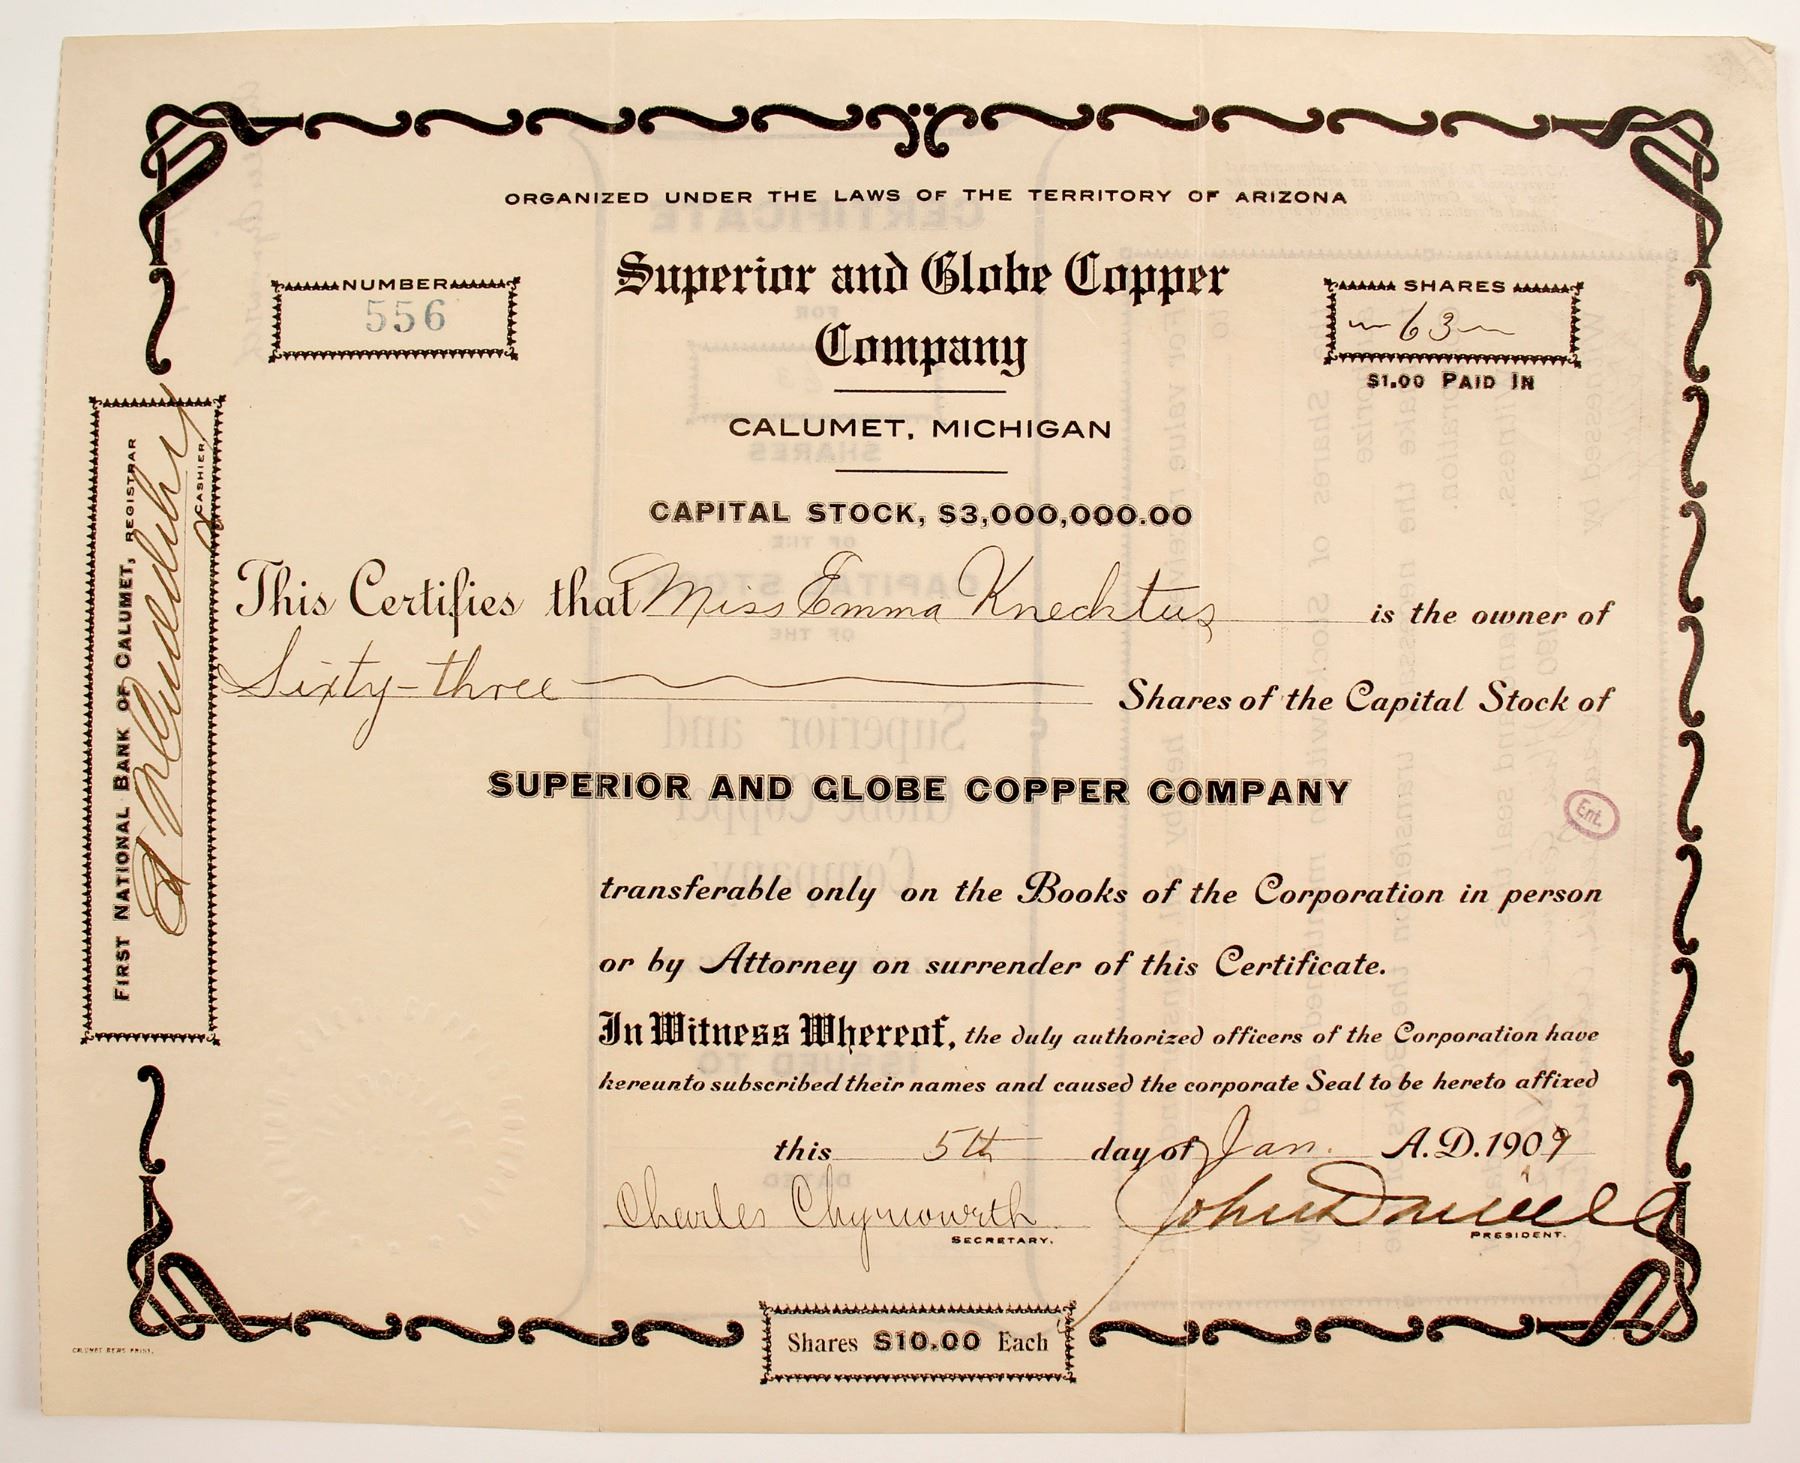 ORGANIZED UNDER THE LAWS OF THE TERRITORY OF ARIZONA
NUMBER
556
Superior and Globe Copper
Company
SHARES
63
$1.00 PAID IN
CALUMET, MICHIGAN
CAPITAL STOCK, $3,000,000.00
FIRST NATIONAL BANK OF CALUMET, REGISTRAR
CASHIER
This Certifies that Miss Emma Knechtus is the owner of
Sixty-three Shares of the Capital Stock of
SUPERIOR AND GLOBE COPPER COMPANY
Ent.
transferable only on the Books of the Corporation in person
or by Attorney on surrender of this Certificate.
In Witness Whereof, the duly authorized officers of the Corporation have
hereunto subscribed their names and caused the corporate Seal to be hereto affixed
this 5th day of Jan. A.D. 1909
Charles Chynoweth John Daniell
SECRETARY. PRESIDENT.
Shares $10.00 Each
CALUMET NEWS PRINT.